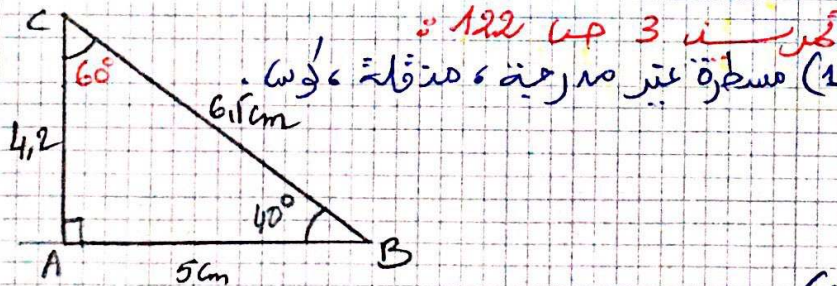 تمرين 3 ص 122 :
1) مسطرة غير مدرجة، منقلة، كوس.
C
60°
6,5cm
4,2
40°
A
B
5cm